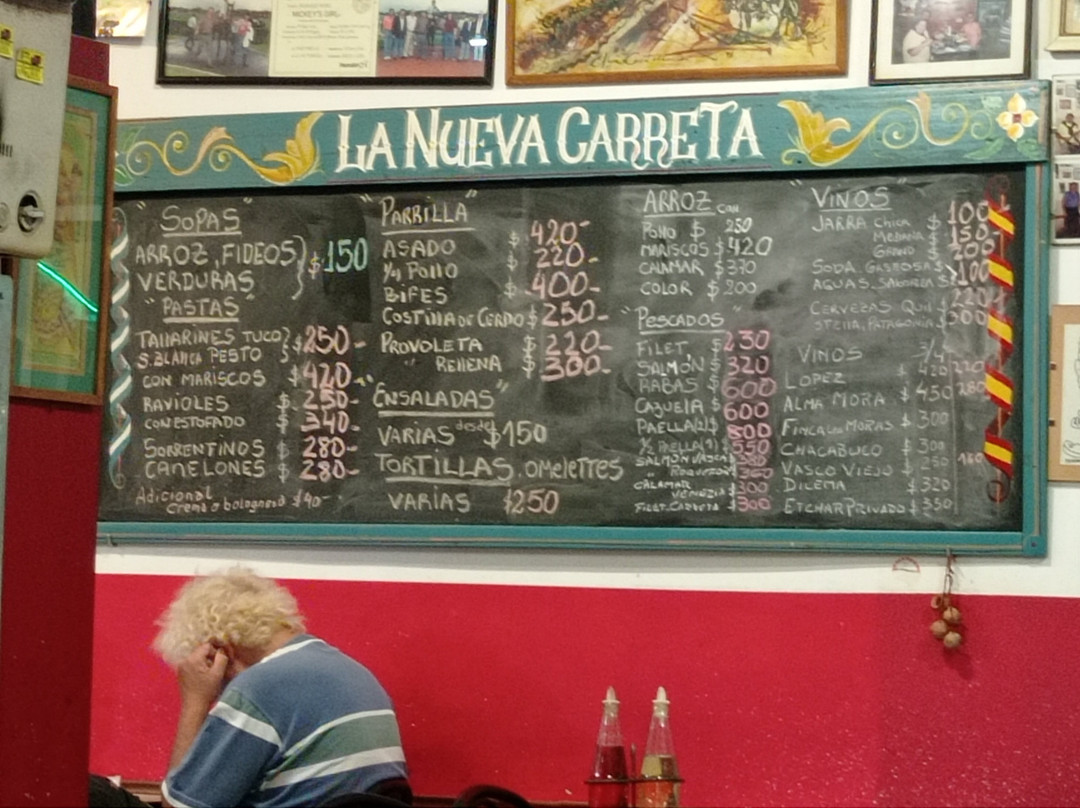 LA NUEVA CARRETA
"SOPAS"
ARROZ, FIDEOS
VERDURAS $150
"PASTAS"
TALLARINES TUCO
S. BLANCA PESTO $250-
CON MARISCOS $420-
RAVIOLES $250-
CON ESTOFADO $340-
SORRENTINOS $280-
CANELONES $280-
Adicional
crema o bolognesa $40-
"PARRILLA"
ASADO $420-
1/4 Pollo $220-
BIFES $400-
COSTILLA DE CERDO $250-
PROVOLETA $220-
" RELLENA $300-
"ENSALADAS"
VARIAS desde $150
TORTILLAS. OMELETTRES
VARIAS $250
ARROZ CON
Pollo $250
MARISCOS $420
CALAMAR $370
COLOR $200
"PESCADOS"
FILET $230
SALMÓN $320
RABAS $600
CAZUELA $600
PAELLA(2) $800
1/2 PAELLA(1) $550
SALMON VASCA
" ROQUEFORT
CALAMAR
VENEZIA $300
FILET. CARRETA $300
"VINOS"
JARRA Chica $100
Mediana $150-
Grand $200
SODA. GASEOSAS
AGUAS. SABORIZ $100
CERVEZAS QUIL
STELLA, PATAGONIA
VINOS 3/4
LOPEZ $420 220
ALMA MORA $450 280
FINCA LAS MORAS $300
CHACABUCO $300
VASCO VIEJO $250 160
DILEMA $320
ETCHART PRIVADO $350